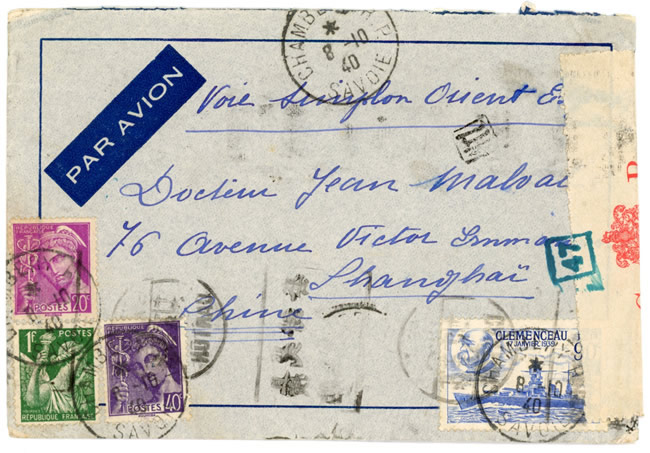 CHAMBERY R.P.
8 -10
40
SAVOIE
PAR AVION
Voie Simplon Orient
Docteur Jean
76 Avenue Victor
Shanghaï
Chine
47
RÉPUBLIQUE FRANÇAISE
POSTES 20ᶜ
1F POSTES
RÉPUBLIQUE FRANÇAISE
RÉPUBLIQUE
POSTES 40ᶜ
CLEMENCEAU
17 JANVIER 1939
CHAMBERY
8 -10
40
SAVOIE